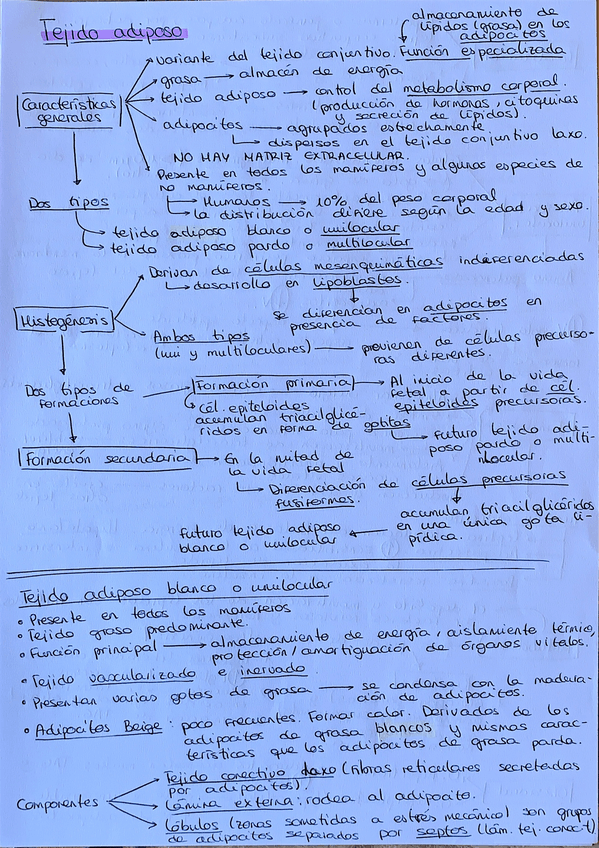 Tejido adiposo
almacenamiento de
lípidos (grasa) en los
adipocitos
variante del tejido conjuntivo. Función especializada
grasa → almacén de energía
tejido adiposo → control del metabolismo corporal.
(producción de hormonas, citoquinas
y secreción de lípidos).
Características
generales
adipocitos → agrupados estrechamente
→ dispersos en el tejido conjuntivo laxo.
NO HAY MATRIZ EXTRACELULAR.
Presente en todos los mamíferos y algunas especies de
no mamíferos.
→ Humanos → 10% del peso corporal
→ la distribución difiere según la edad y sexo.
Dos tipos
→ tejido adiposo blanco o unilocular
→ tejido adiposo pardo o multilocular
Derivan de células mesenquimáticas indiferenciadas
→ desarrollo en lipoblastos.
se diferencian en adipocitos en
presencia de factores.
Histogénesis
Ambos tipos
(uni y multiloculares) → provienen de células precurso-
ras diferentes.
Dos tipos de
formaciones
Formación primaria → Al inicio de la vida
fetal a partir de cél.
epiteloides precursoras.
cél. epiteloides
acumulan triacilglicé-
ridos en forma de gotitas
→ futuro tejido adi-
poso pardo o multi-
locular.
Formación secundaria → En la mitad de
la vida fetal
→ Diferenciación de células precursoras
fusiformes.
acumulan triacilglicéridos
en una única gota li-
pídica.
futuro tejido adiposo
blanco o unilocular
Tejido adiposo blanco o unilocular
• Presente en todos los mamíferos
• Tejido graso predominante.
• Función prinapal → almacenamiento de energía, aislamiento térmico,
protección/amortiguación de órganos vitales.
• Tejido vascularizado e inervado.
• Presentan varias gotas de grasa → se condensa con la madura-
ción de adipocitos.
• Adipocitos Beige: poco frecuentes. Formar calor. Derivados de los
adipocitos de grasa blancos y mismas carac-
terísticas que los adipocitos de grasa parda.
Componentes
Tejido conectivo laxo (fibras reticulares secretadas
por adipocitos).
Lámina externa: rodea al adipocito.
Lóbulos (zonas sometidas a estrés mecánico) son grupos
de adipocitos separados por septos (lám. tej. conect)